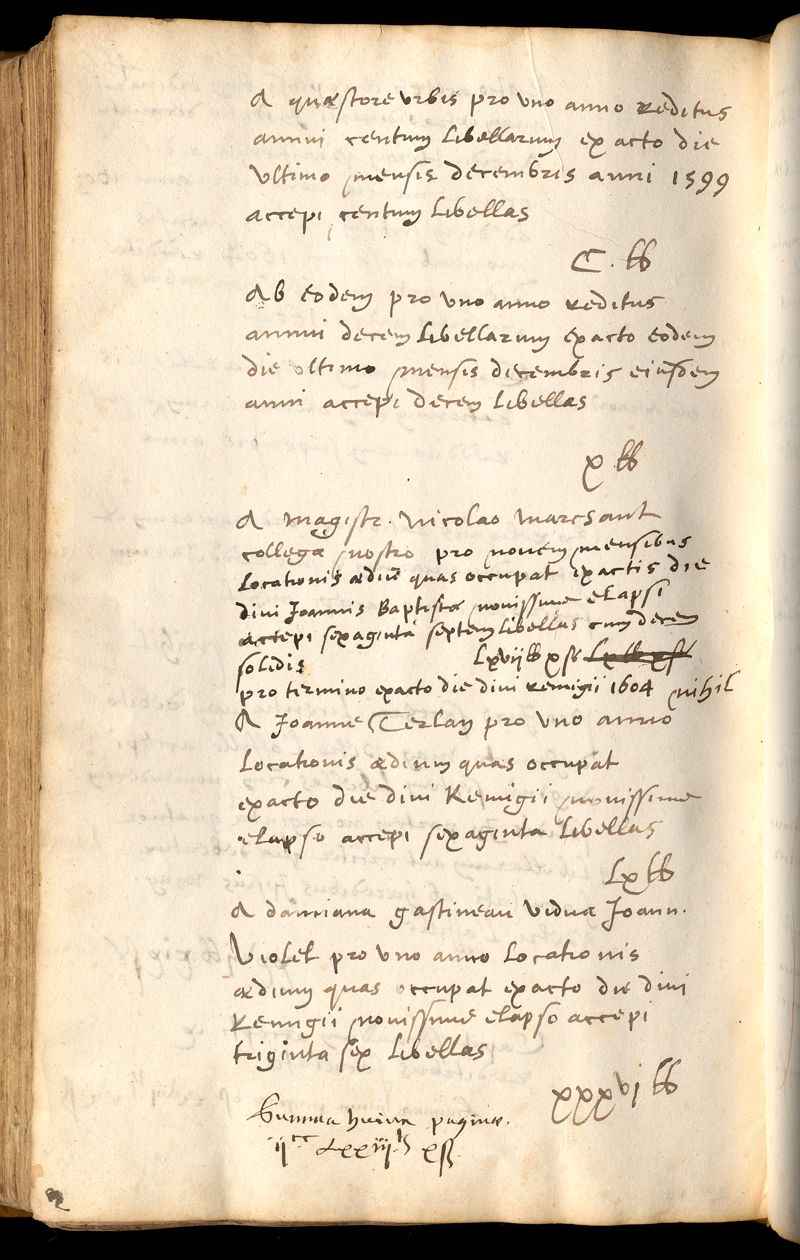 A quæstore urbis pro uno anno reditus
annui centum libellarum exacto die
ultimo mensis decembris anni 1599
accepi centum libellas
C. lb
Ab eodem pro uno anno reditus
annui decem libellarum exacto eodem
die ultimo mensis decembris eiusdem
anni accepi decem libellas
x lb
A magistr. Nicolao Marcsant
collega nostro pro novem mensibus
locationis ædiū quas occupat exactis die
divi Joannis Baptistæ novissime elapsi
accepi sexaginta septem libellas cum decem
solidis Lxvij lb x ß Lx lb x ß
pro termino exacto die divi Remigii 1604 nihil
A Joanne Terlan pro uno anno
locationis ædium quas occupat
exacto die divi Remigii novissime
elapso accepi sexaginta libellas
Lx lb
A damiana gastineau vidua Joann.
Violet pro uno anno locationis
ædium quas occupat exacto die divi
Remigii novissime elapso accepi
triginta sex libellas
xxxvj lb
Summa huius paginæ.
ijcc Lxxiij lb x ß